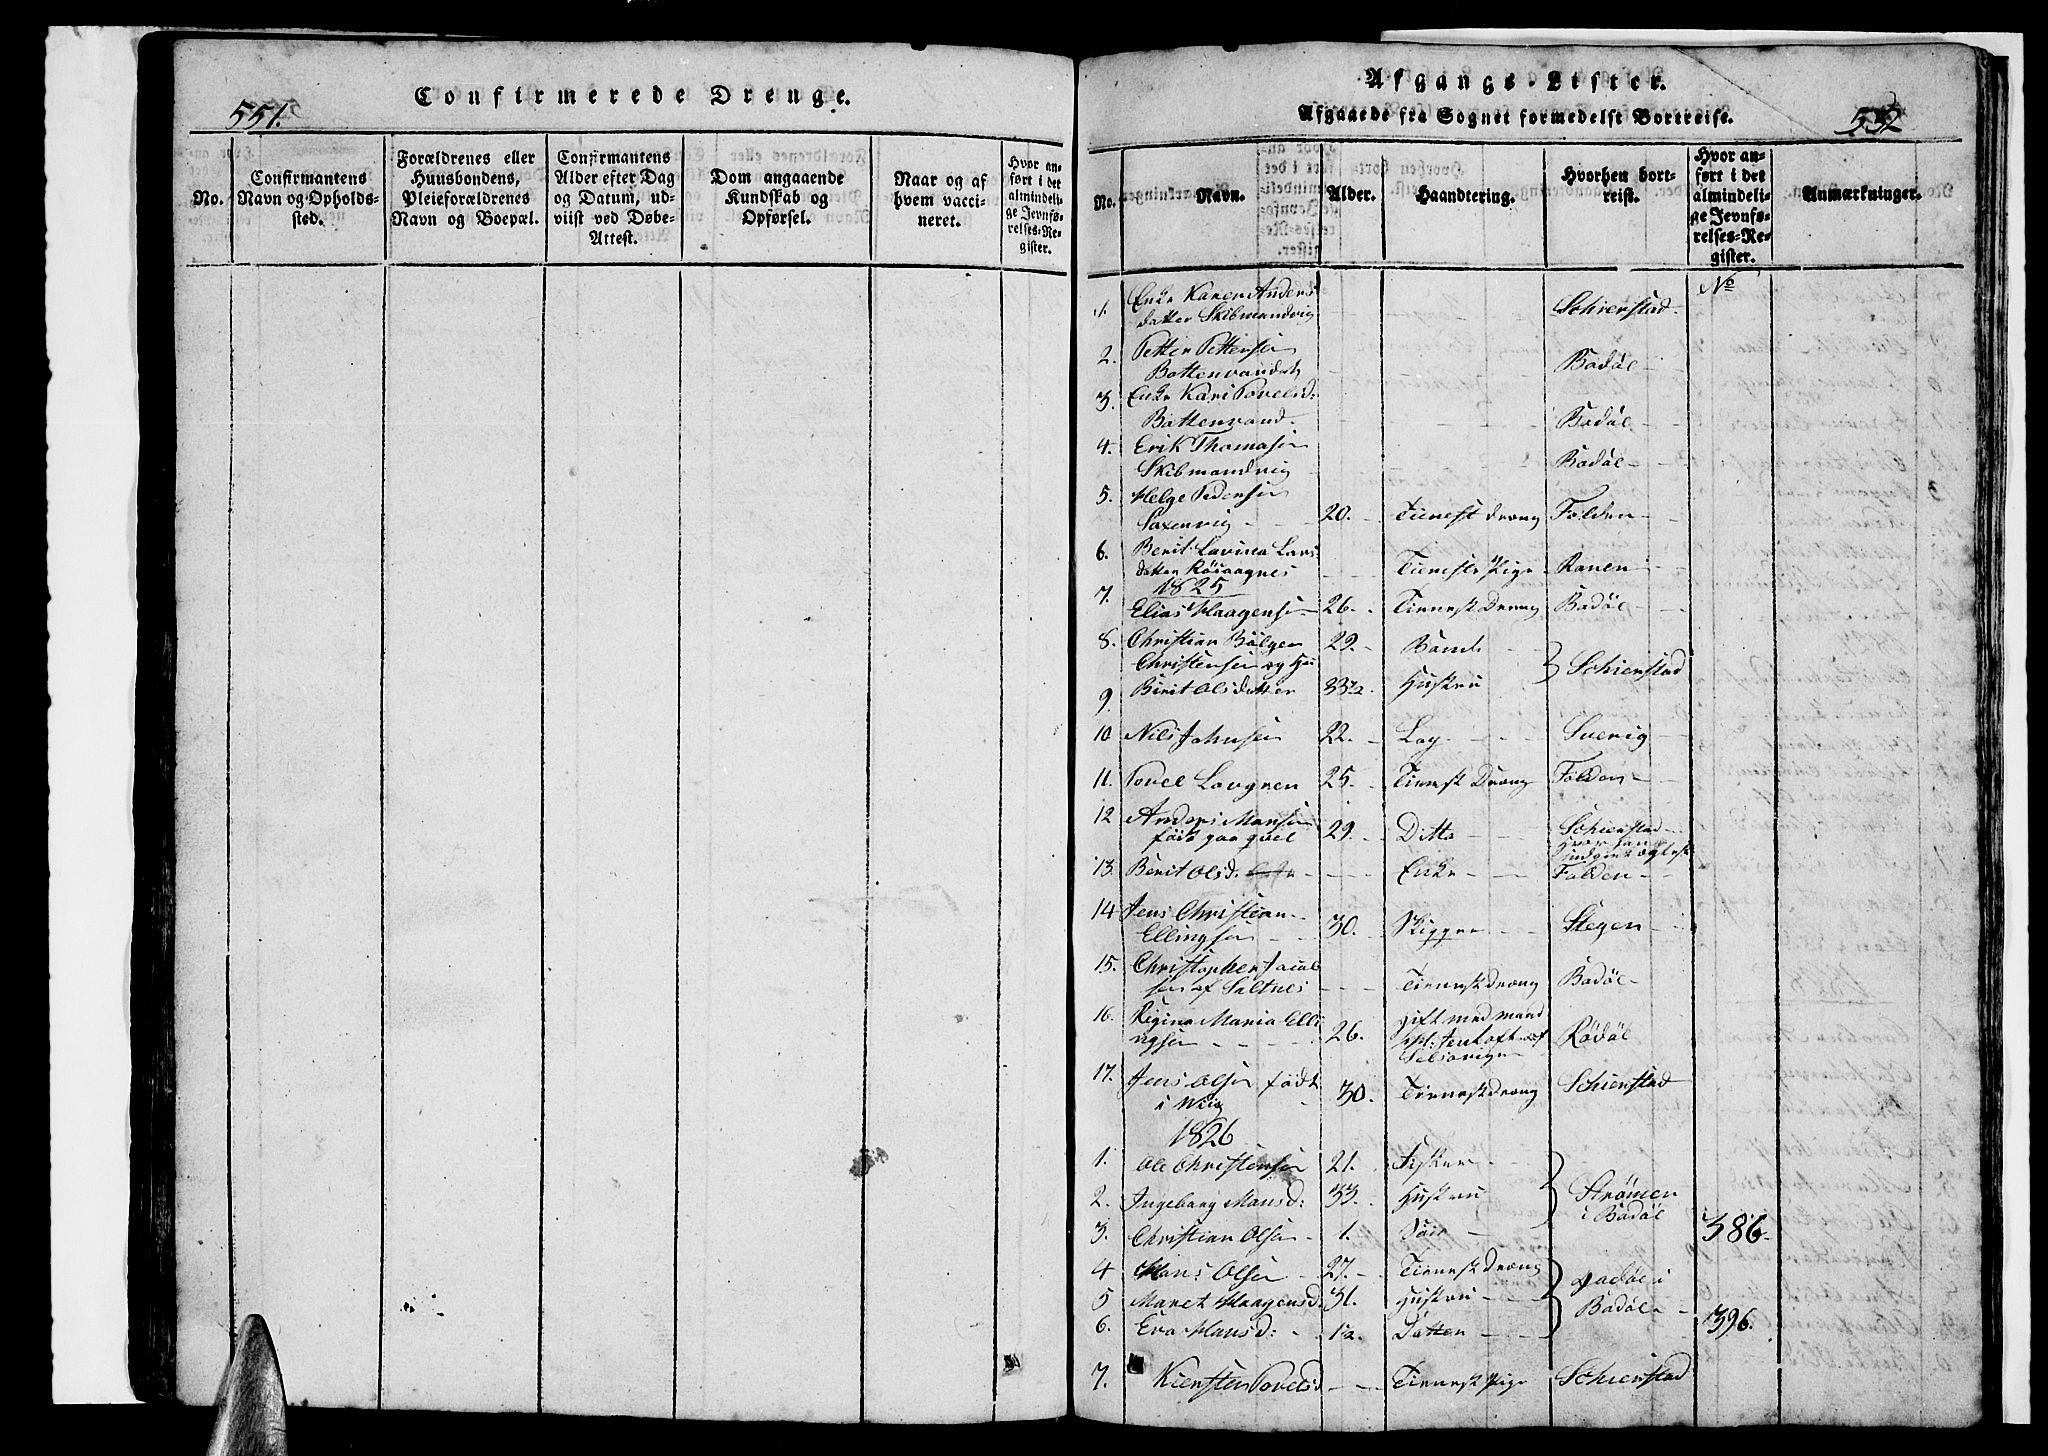 551.
Confirmerede Drenge.
No.
Confirmantens
Navn og Opholds-
sted.
Forældrenes eller
Huusbondens,
Pleieforældrenes
Navn og Boepæl.
Confirmantens
Alder efter Dag
og Datum, ud-
viist ved Døbe-
Attest.
Dom angaaende
Kundskab og
Opførsel.
Naar og af
hvem vacci-
neret.
Hvor an-
ført i det
almindeli-
ge Jevnfø-
relses-Re-
gister.
Afgangs-Lister.
Afgaaede fra Sognet formedelst Bortreise.
552
No.
Navn.
Alder.
Haandtering.
Hvorhen bort-
reist.
Hvor an-
ført i det
almindeli-
ge Jevnfø-
relses-Re-
gister.
Anmærkninger.
No
1. Enke Karen Anders
datter Skibmandvig Schierstad
2. Petter Pettersen
Bottenvandet Bodöe
3. Enke Kari Povelsd:
Bottenvand Bodöe
4. Erik Thomasen
Skibmandvig Bodöe
5. Helge Pedersen
Saxenvig 20. Tienest dræng Folden
6. Berit Lovina Lars
datter Tieneste Pige Ranen
1825
7. Elias Haagensen 26. Tienest Dræng Bodöe
8. Christian Bölgen 29. Bonde
Christensen og Hu
9. Berit Olsdatter 33 Hustru Schierstad
10 Nils Johnsen 22. Lap Sverig
11. Povel Lovgren 25. Tienest Dræng Folden
12 Anders Monsen
föde paa qvel 29. Ditto Schierstad
hvor han
indgik ægtesk
13. Berit Olsd: Enke Folden
14 Jens Christian
Ellingsen 30. Skipper Stegen
15. Christopher Jacob
sen af Saltnes Tienestdræng Bodöe
16. Regina Maria Elli
ngsen 26. gift med mand
Selsøvig Rödöe
17. Jens Olsen födt
i Wiig 30. Tienestdræng Schierstad
1826
1. Ole Christensen 21. Fisker
2. Ingeborg Monsd: 33. Hustru Strömen
i Bodöe
3. Christian Olsen 1. Sön 386.
4 Hans Olsen 27. Tienest Dræng
5 Maret Haagensd. 31. Hustru i
Bodöe
6. Eva Hansd: Datter 396.
7. Kiersten Povelsd Tienest Pige Schierstad